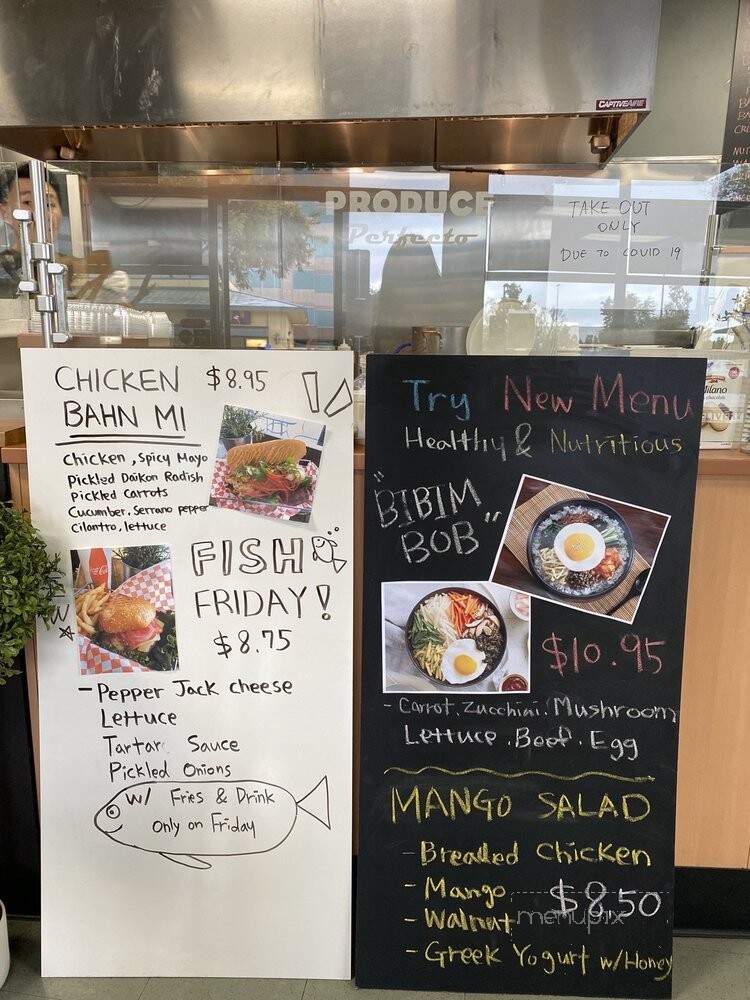 CAPTIVEAIRE
PRODUCE
Perfecto
TAKE OUT
ONLY
DUE TO COVID 19
CHICKEN $8.95
BAHN MI
Chicken, Spicy Mayo
Pickled Daikon Radish
Pickled Carrots
Cucumber, Serrano pepper
Cilantro, lettuce
FISH
FRIDAY!
$8.75
- Pepper Jack cheese
Lettuce
Tartar Sauce
Pickled Onions
w/ Fries & Drink
Only on Friday
Try New Menu
Healthy & Nutritious
"BIBIM
BOB"
$10.95
- Carrot. Zucchini. Mushroom
Lettuce. Beef. Egg
MANGO SALAD
- Breaded Chicken
- Mango
$8,50
- Walnut
- Greek Yogurt w/Honey
menupix
Milano